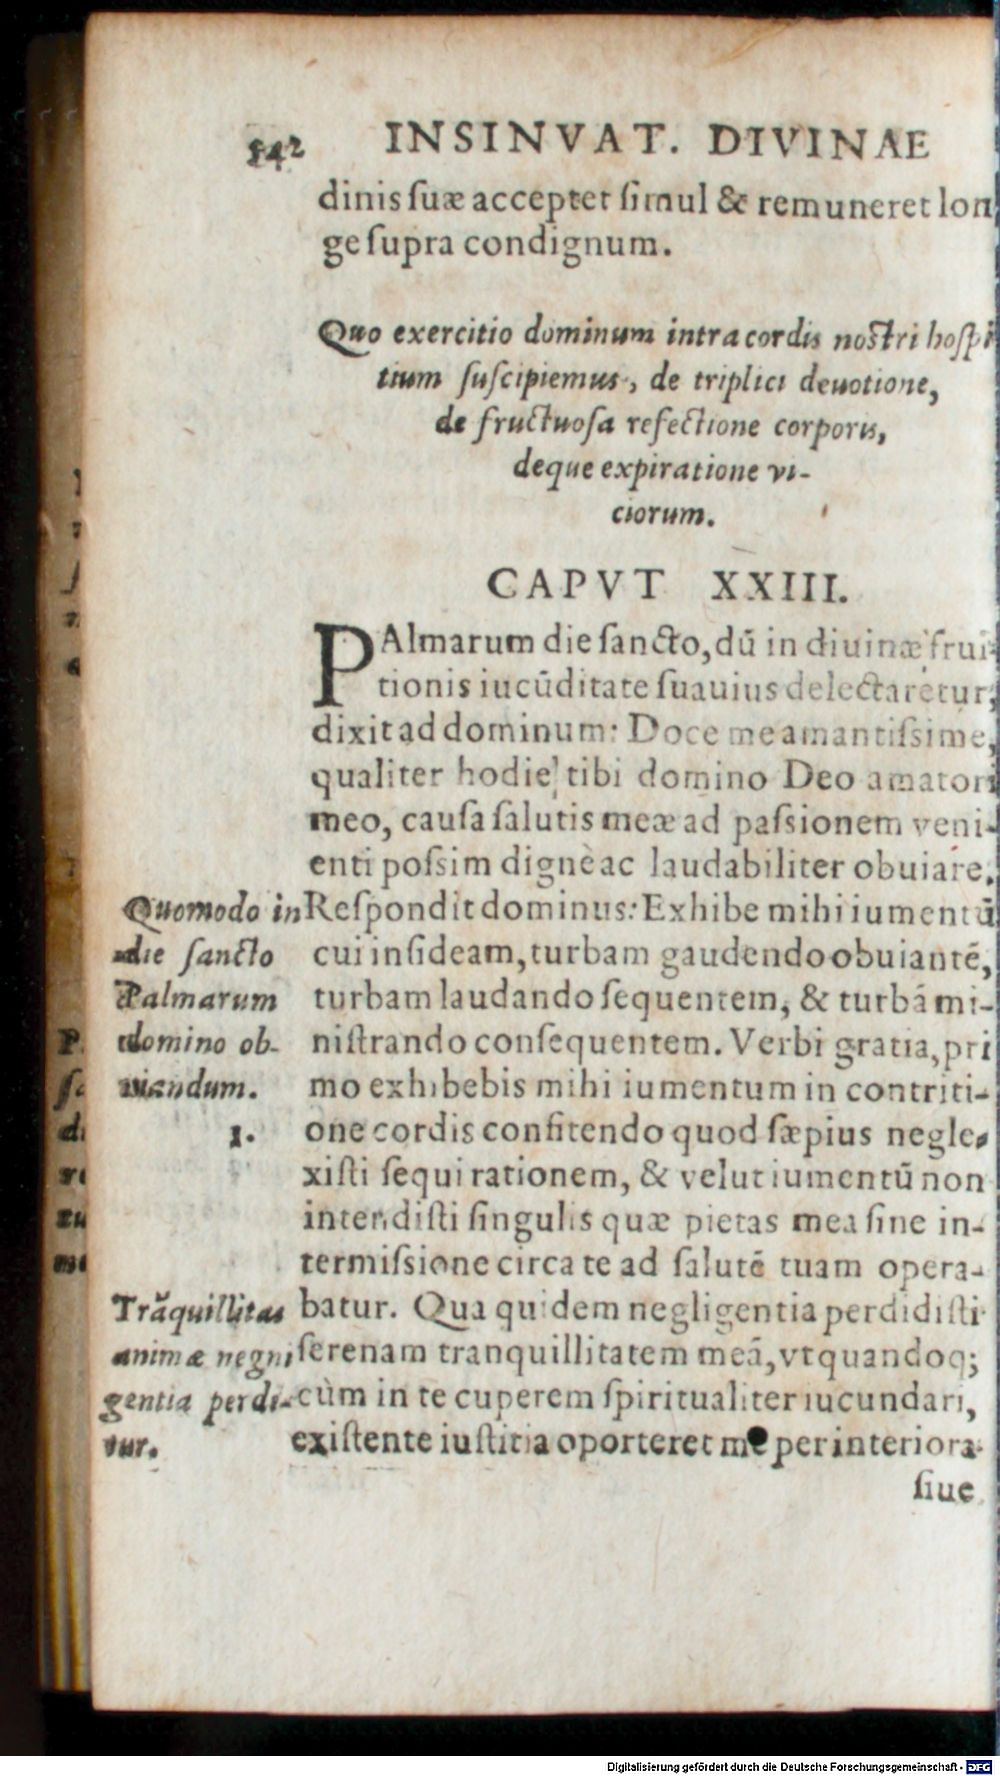 542 INSINVAT. DIVINAE
dinis suæ acceptet simul & remuneret lon
ge supra condignum.
Quo exercitio dominum intra cordis nostri hospi
tium suscipiemus, de triplici deuotione,
de fructuosa refectione corporis,
deque expiratione vi-
ciorum.
CAPVT XXIII.
PAlmarum die sancto, dū in diuinæ frui-
tionis iucūditate suauius delectaretur,
dixit ad dominum: Doce me amantissime,
qualiter hodie tibi domino Deo amatori
meo, causa salutis meæ ad passionem veni-
enti possim dignè ac laudabiliter obuiare.
Respondit dominus: Exhibe mihi iumentū
cui insideam, turbam gaudendo obuiantē,
turbam laudando sequentem, & turbā mi-
nistrando consequentem. Verbi gratia, pri
mo exhibebis mihi iumentum in contriti-
one cordis confitendo quod sæpius negle-
xisti sequi rationem, & velut iumentū non
intendisti singulis quæ pietas mea sine in-
termissione circa te ad salutē tuam opera-
batur. Qua quidem negligentia perdidisti
serenam tranquillitatem meā, vt quandoq;
cùm in te cuperem spiritualiter iucundari,
existente iustitia oporteret me per interiora
siue
Quomodo in
die sancto
Palmarum
domino ob-
uiandum.
1.
Trāquillitas
animæ negni
gentia perdi-
tur.
Digitalisierung gefördert durch die Deutsche Forschungsgemeinschaft - DFG